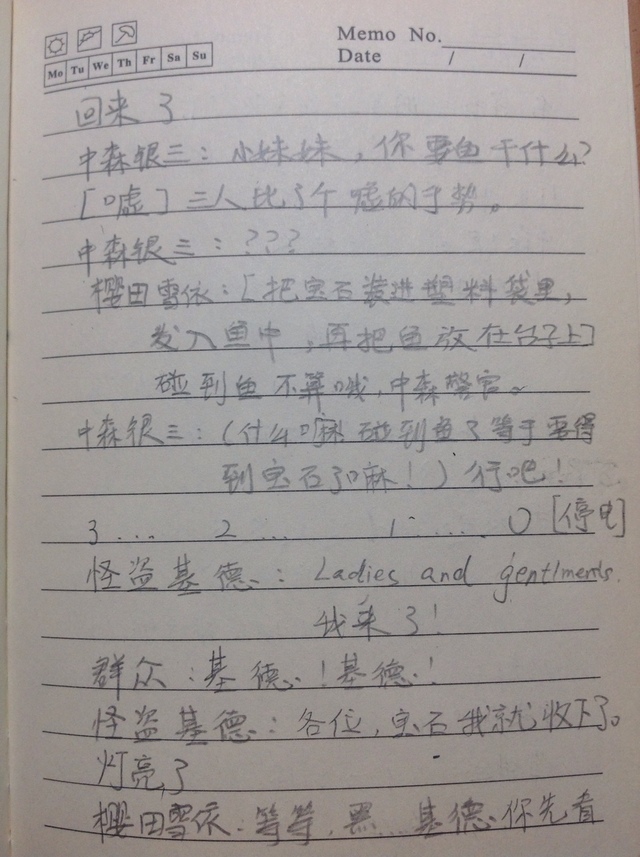 Memo No.
Date / /
Mo Tu We Th Fr Sa Su
回来了
中森银三：小妹妹，你要鱼干什么？
[嘘] 三人比了个嘘的手势。
中森银三：???
樱田雪依：[把宝石装进塑料袋里，
发入鱼中，再把鱼放在台子上]
碰到鱼不算哦，中森警官。
中森银三：(什么嘛 碰到鱼了等于要得
到宝石了嘛！) 行吧！
3... 2... 1...... 0 [停电]
怪盗基德：Ladies and gentlments.
我来了！
群众：基德！基德！
怪盗基德：各位，宝石我就收下了。
灯亮了
樱田雪依：等等，黑...基德你先看